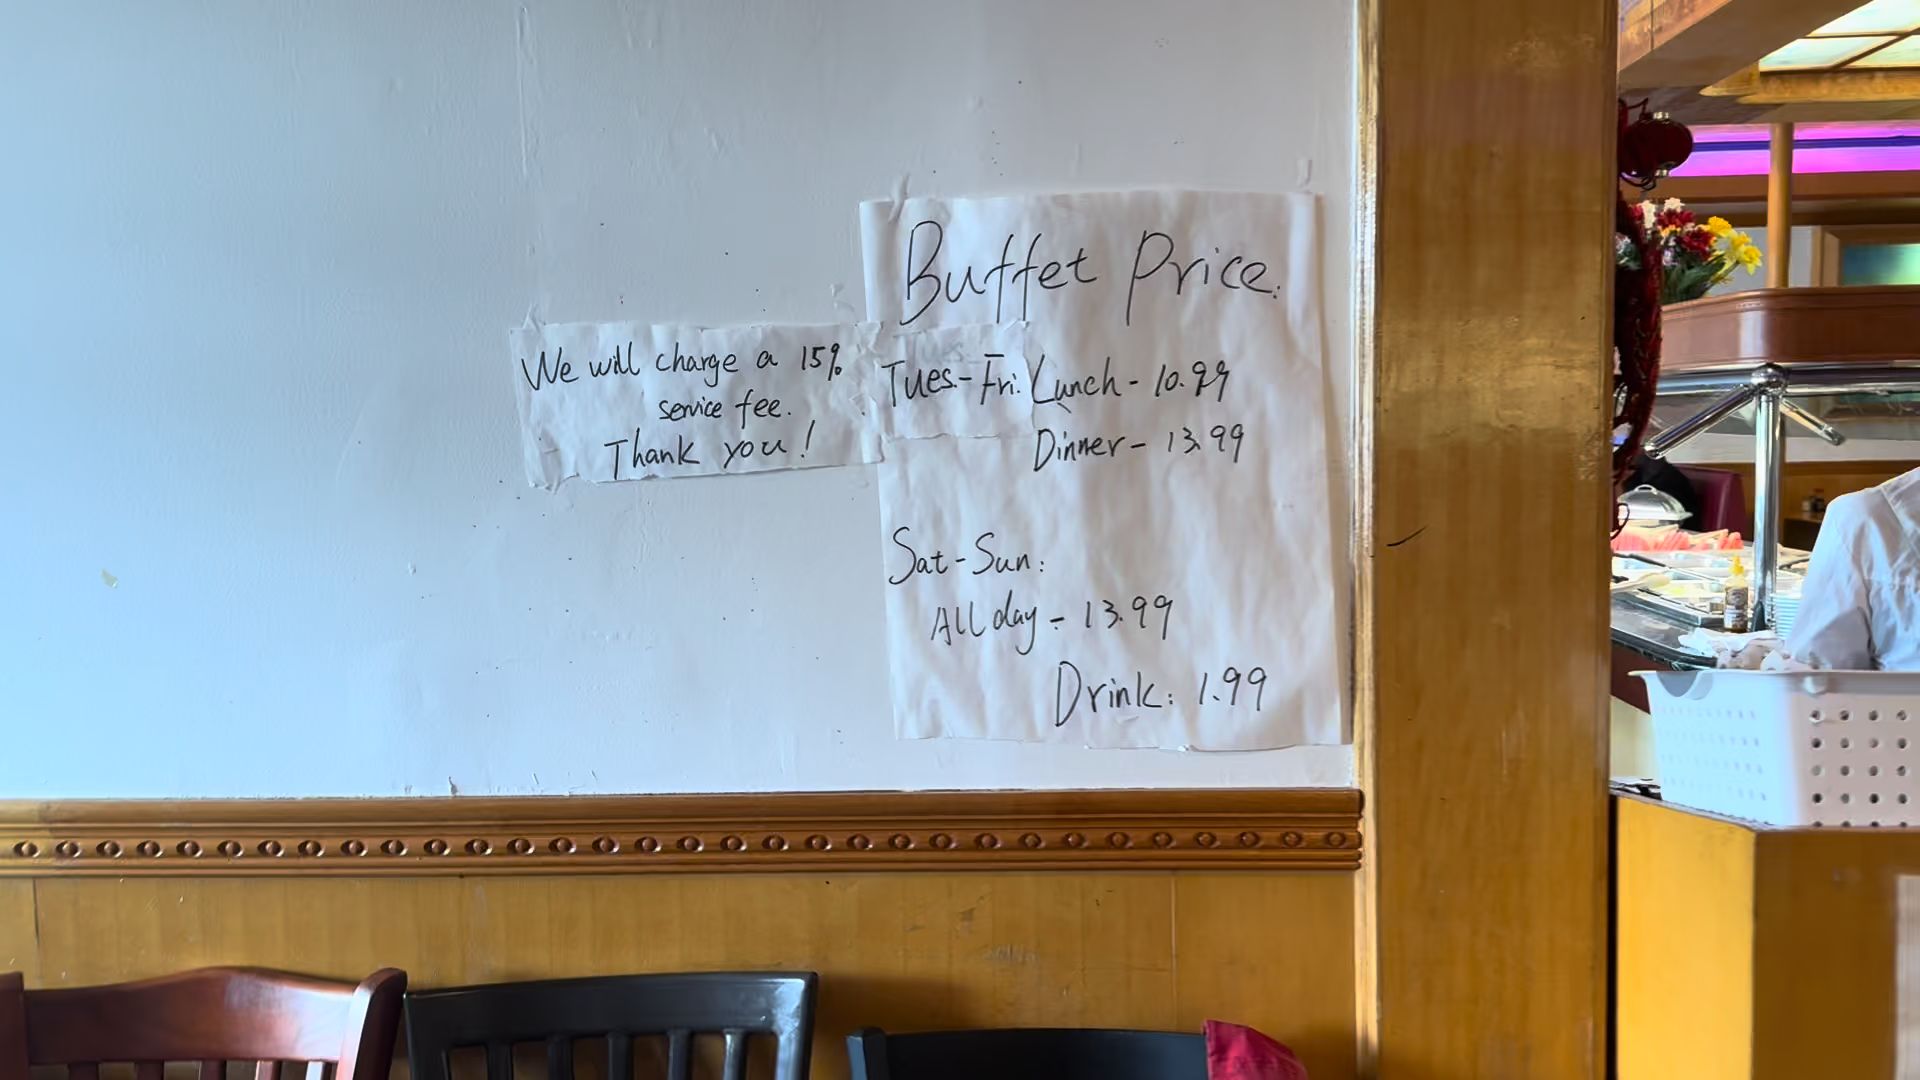 We will charge a 15%
service fee.
Thank you!
Buffet Price:
Tues.-Fri: Lunch - 10.99
Dinner - 13.99
Sat-Sun:
All day - 13.99
Drink: 1.99